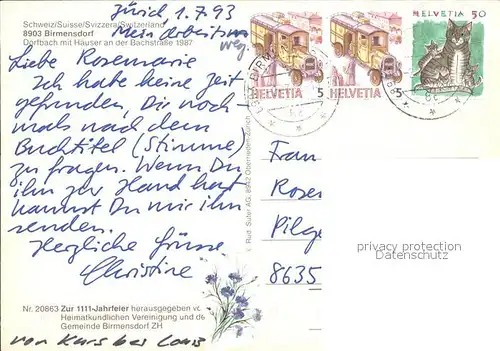 Schweiz/Suisse/Svizzera/Switzerland
8903 Birmensdorf
Dorfbach mit Häuser an der Bachstraße 1987
Zürich 1.7.93
Mein Arbeitsweg
Liebe Rosemarie
Ich habe keine Zeit
gefunden, Dir noch-
mals nach dem
Buchtitel (Stimme)
zu fragen. Wenn Du
ihn zur Hand hast
kannst Du mir ihn
senden.
Herzliche Grüsse
Christine
Nr. 20863 Zur 1111-Jahrfeier herausgegeben vo
Heimatkundlichen Vereinigung und de
Gemeinde Birmensdorf ZH
von Kurs bei
Rud. Suter AG, 8942 Oberrieden-Zürich
HELVETIA 5
HELVETIA 5
HELVETIA 50
Frau
Rosen
Pilge
8635
privacy protection
Datenschutz